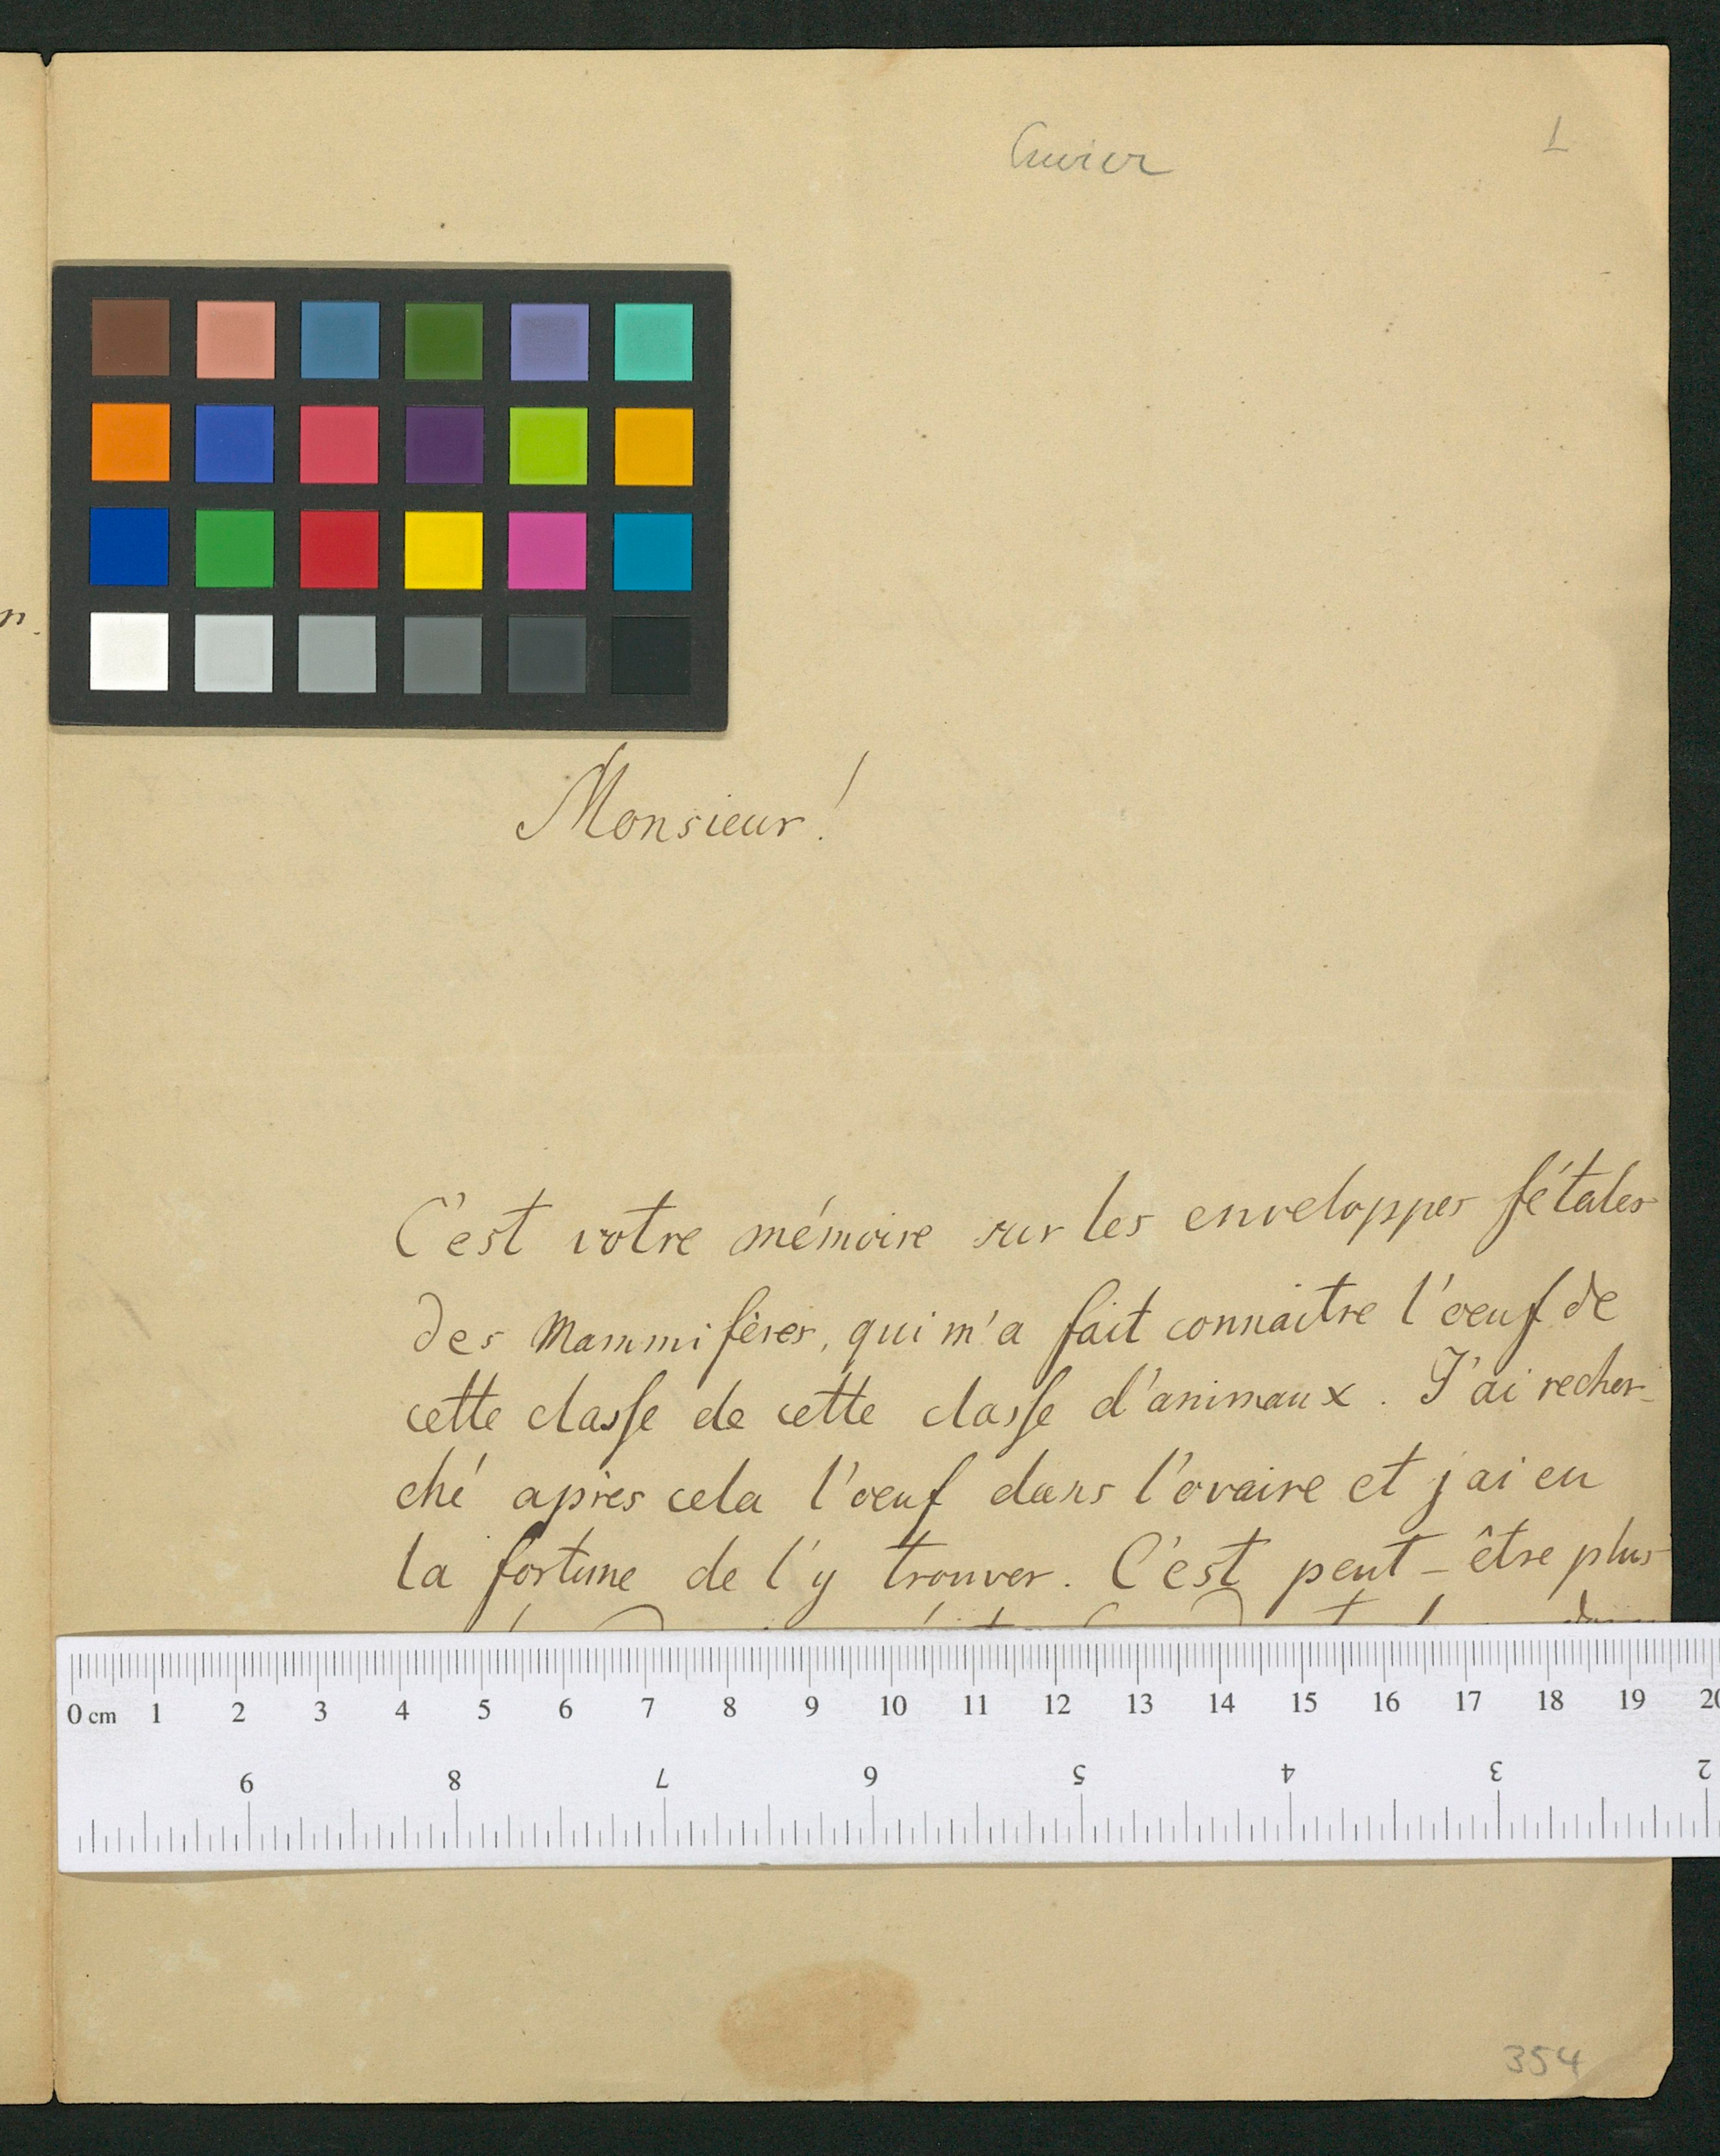 Cuvier
L
n.
Monsieur!
C'est votre mémoire sur les enveloppes fétales
des Mammifères, qui m'a fait connaitre l'oeuf de
cette classe de cette classe d'animaux. J'ai recher-
ché après cela l'oeuf dans l'ovaire et j'ai eu
la fortune de l'y trouver. C'est peut-être plus
0 cm 1 2 3 4 5 6 7 8 9 10 11 12 13 14 15 16 17 18 19 20
9 8 7 6 5 4 3 2
354